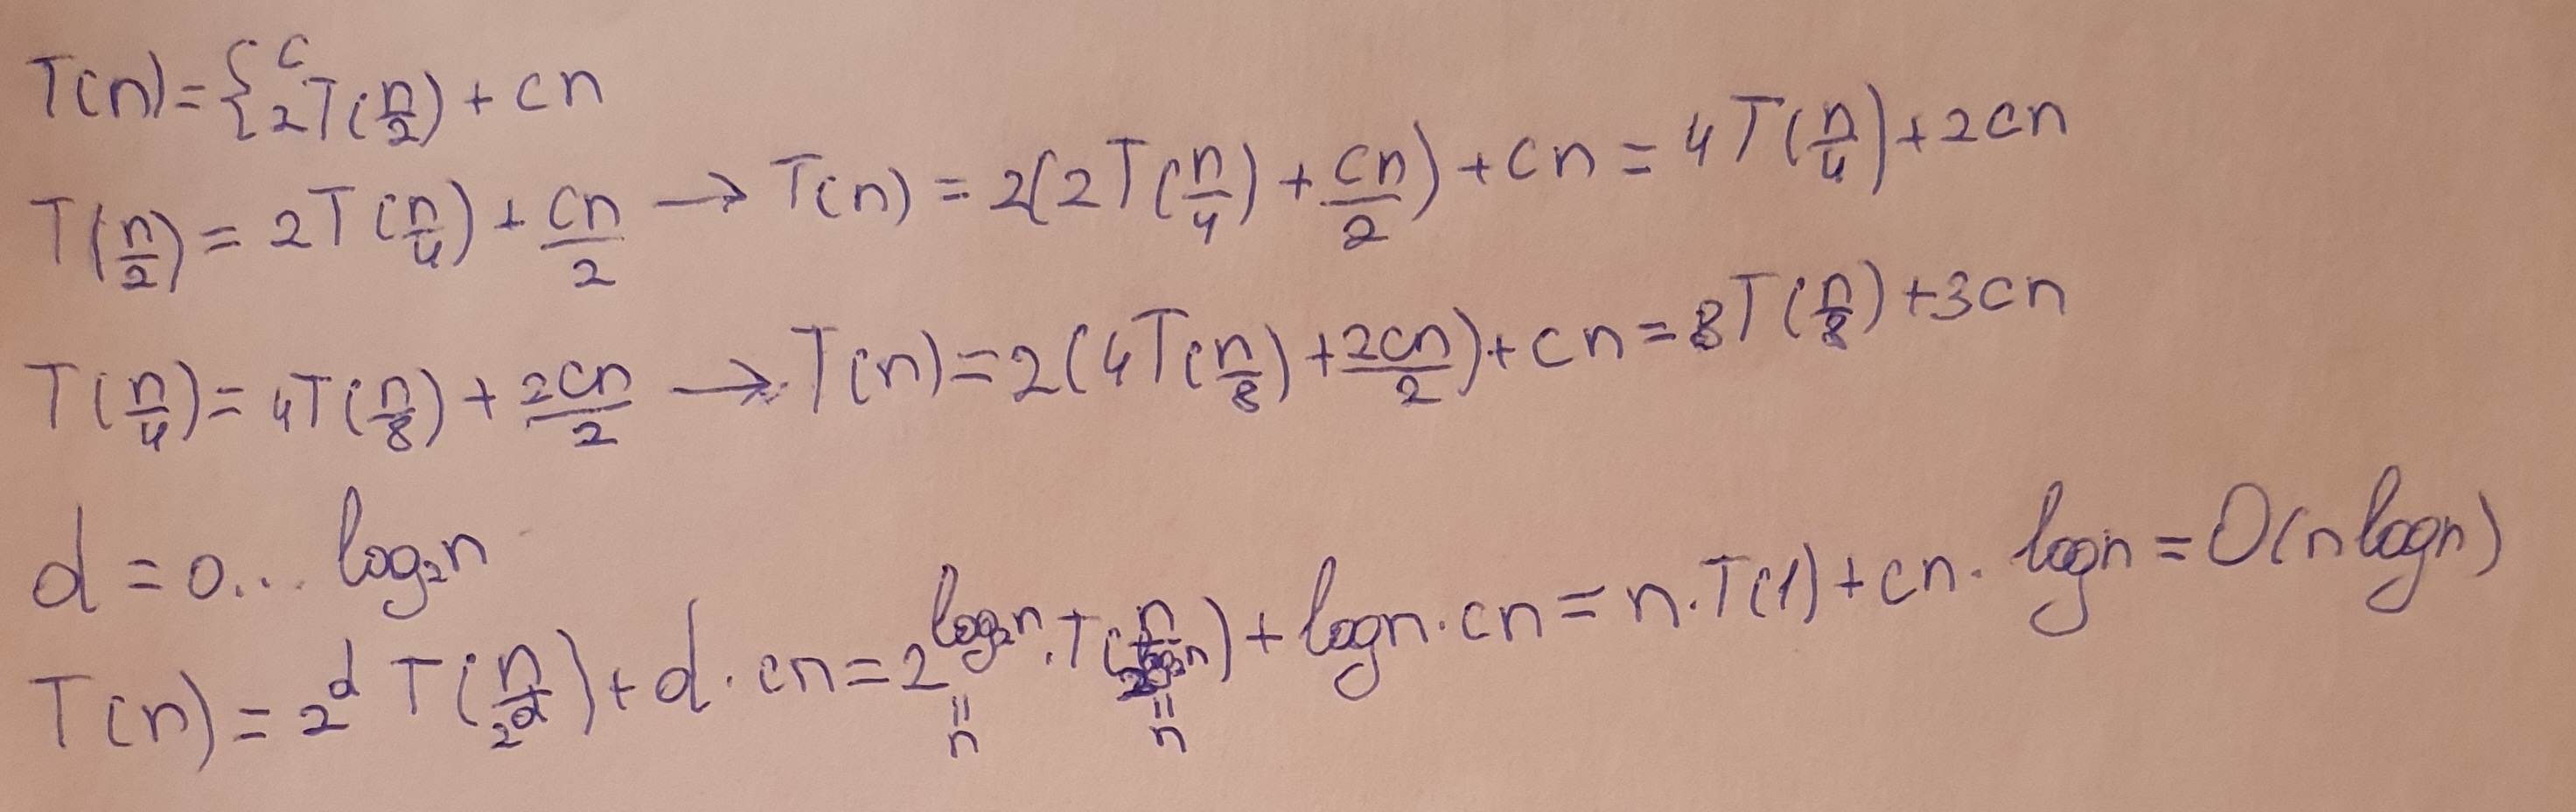 T(n) = { c
2T(n/2) + cn
T(n/2) = 2T(n/4) + cn/2 → T(n) = 2(2T(n/4) + cn/2) + cn = 4T(n/4) + 2cn
T(n/4) = 4T(n/8) + 2cn/2 → T(n) = 2(4T(n/8) + 2cn/2) + cn = 8T(n/8) + 3cn
d = 0... log₂n
T(n) = 2^d T(n/2^d) + d · cn = 2^(log₂n) · T(n/2^(log₂n)) + logn · cn = n · T(1) + cn · logn = O(n logn)
= n = n